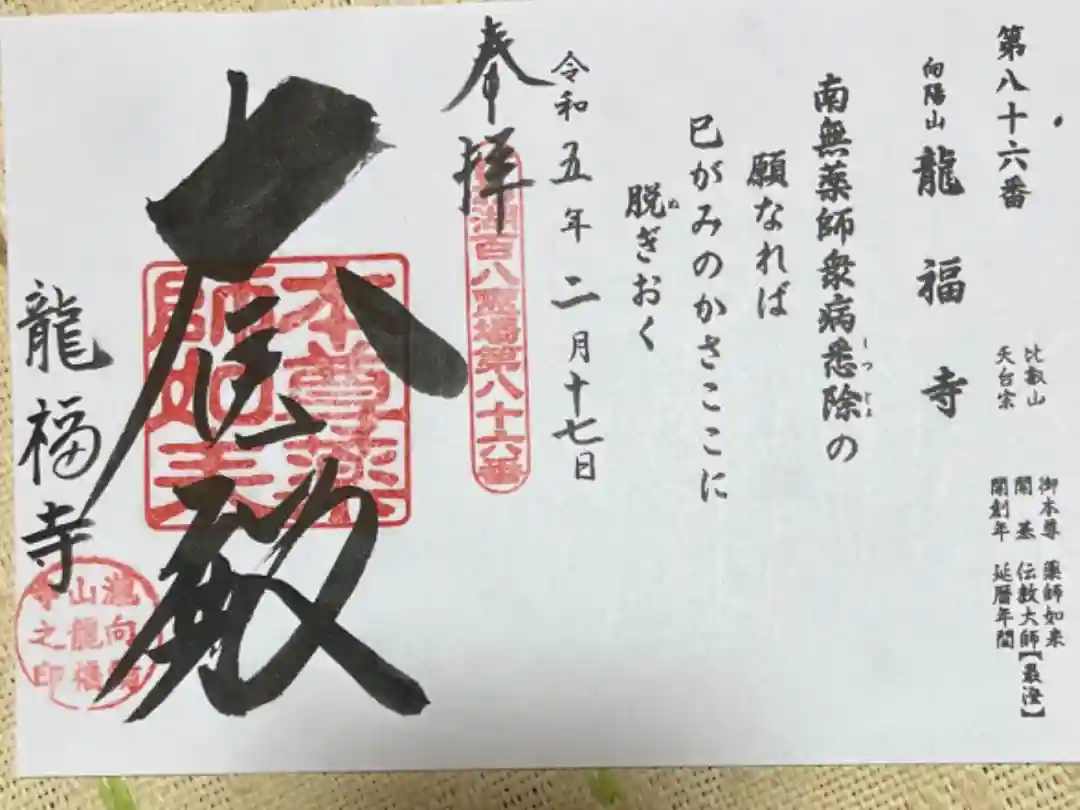 第八十六番
比叡山
天台宗
御本尊 薬師如来
開基 伝教大師【最澄】
開創年 延暦年間
向陽山 龍福寺
南無薬師衆病悉除の
しつ じょ
願なれば
己がみのかさここに
脱ぎおく
ぬ
令和五年二月十七日
奉拝
湖百八霊場第八十六番
本尊薬師如来
殿
龍福寺